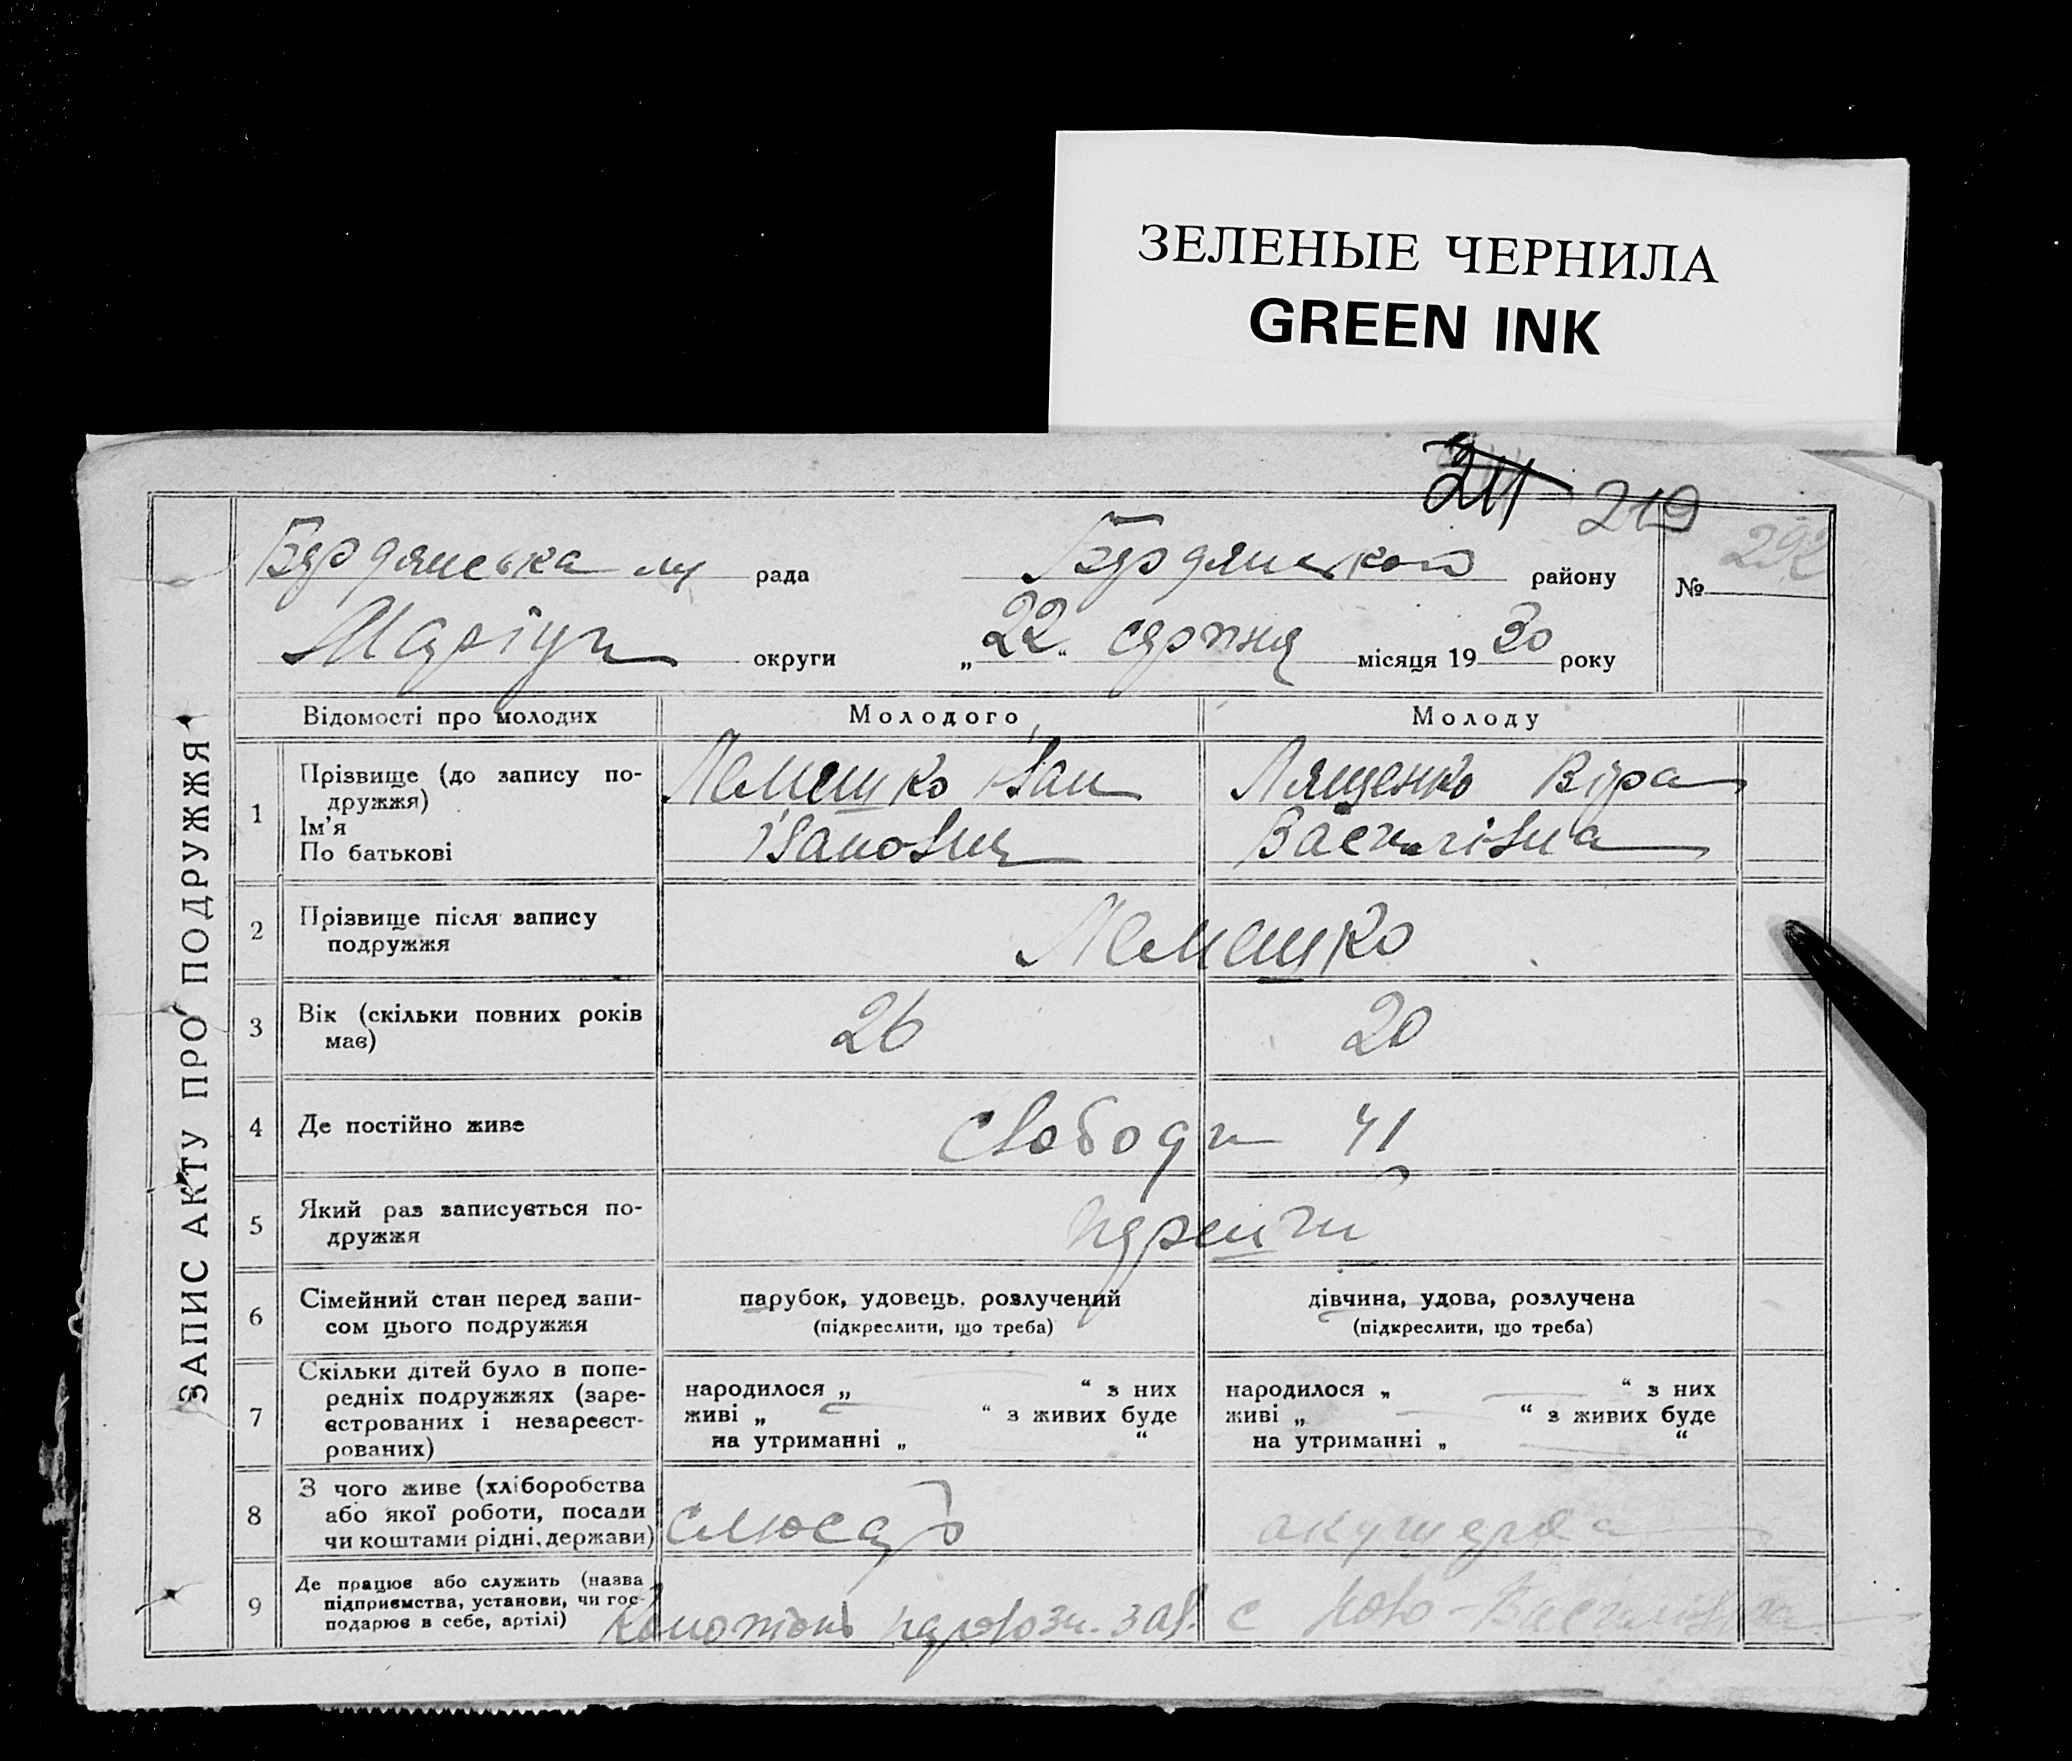 ЗЕЛЕНЫЕ ЧЕРНИЛА
GREEN INK
211 219
Бердянська м рада Бердянського району № 292
Маріуп округи „22“ серпня місяця 1930 року
ЗАПИС АКТУ ПРО ПОДРУЖЖЯ
Відомості про молодих Молодого Молоду
1 Прізвище (до запису по-
дружжя)
Ім'я
По батькові
Лемешко Іван
Іванович
Лященко Віра
Василівна
2 Прізвище після запису
подружжя
Лемешко
3 Вік (скільки повних років
має)
26 20
4 Де постійно живе
Свободи 41
5 Який раз записується по-
дружжя
перший
6 Сімейний стан перед запи-
сом цього подружжя
парубок, удовець, розлучений
(підкреслити, що треба)
дівчина, удова, розлучена
(підкреслити, що треба)
7 Скільки дітей було в попе-
редніх подружжях (заре-
єстрованих і незареєст-
рованих)
народилося „ “ з них
живі „ “ з живих буде
на утриманні „ “
народилося „ “ з них
живі „ “ з живих буде
на утриманні „ “
8 З чого живе (хліборобства
або якої роботи, посади
чи коштами рідні, держави)
слюсар акушерка
9 Де працює або служить (назва
підприємства, установи, чи гос-
подарює в себе, артілі)
паровозн. зав. с Ново-Василівка